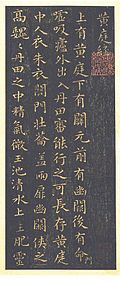 黃庭經
上有黃庭下有關元前有幽闕後有命門
噓吸廬外出入丹田審能行之可長存黃庭
中人衣朱衣關門壯籥蓋兩扉幽闕俠之
高魏魏丹田之中精氣微玉池清水上生肥靈